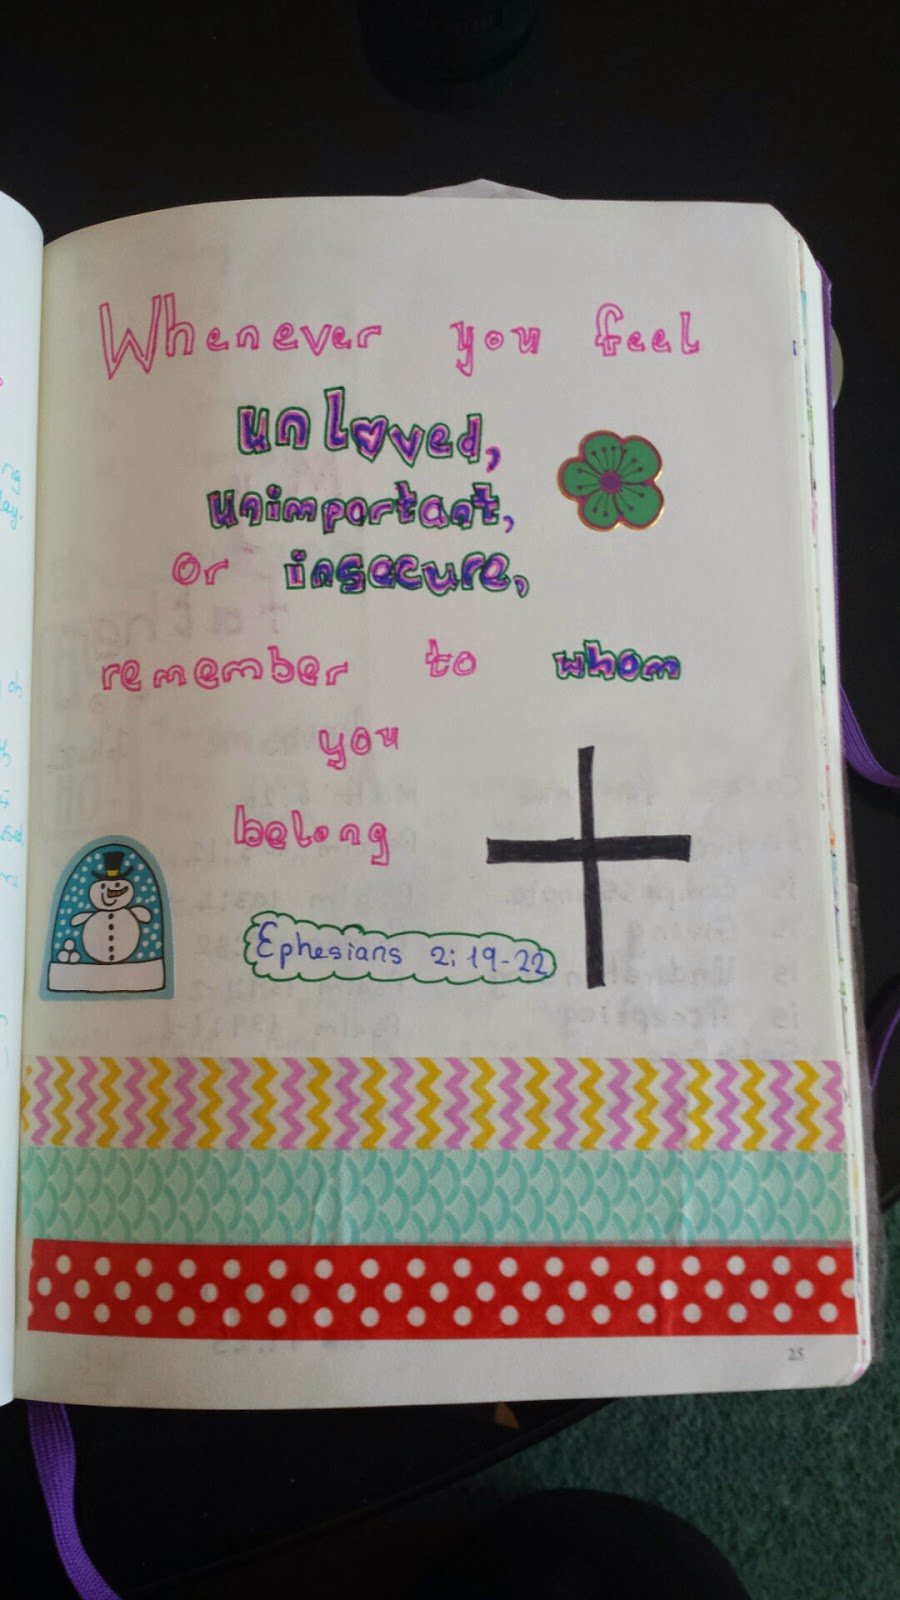 Whenever you feel
unloved,
unimportant,
or insecure,
remember to whom
you
belong
Ephesians 2:19-22
25